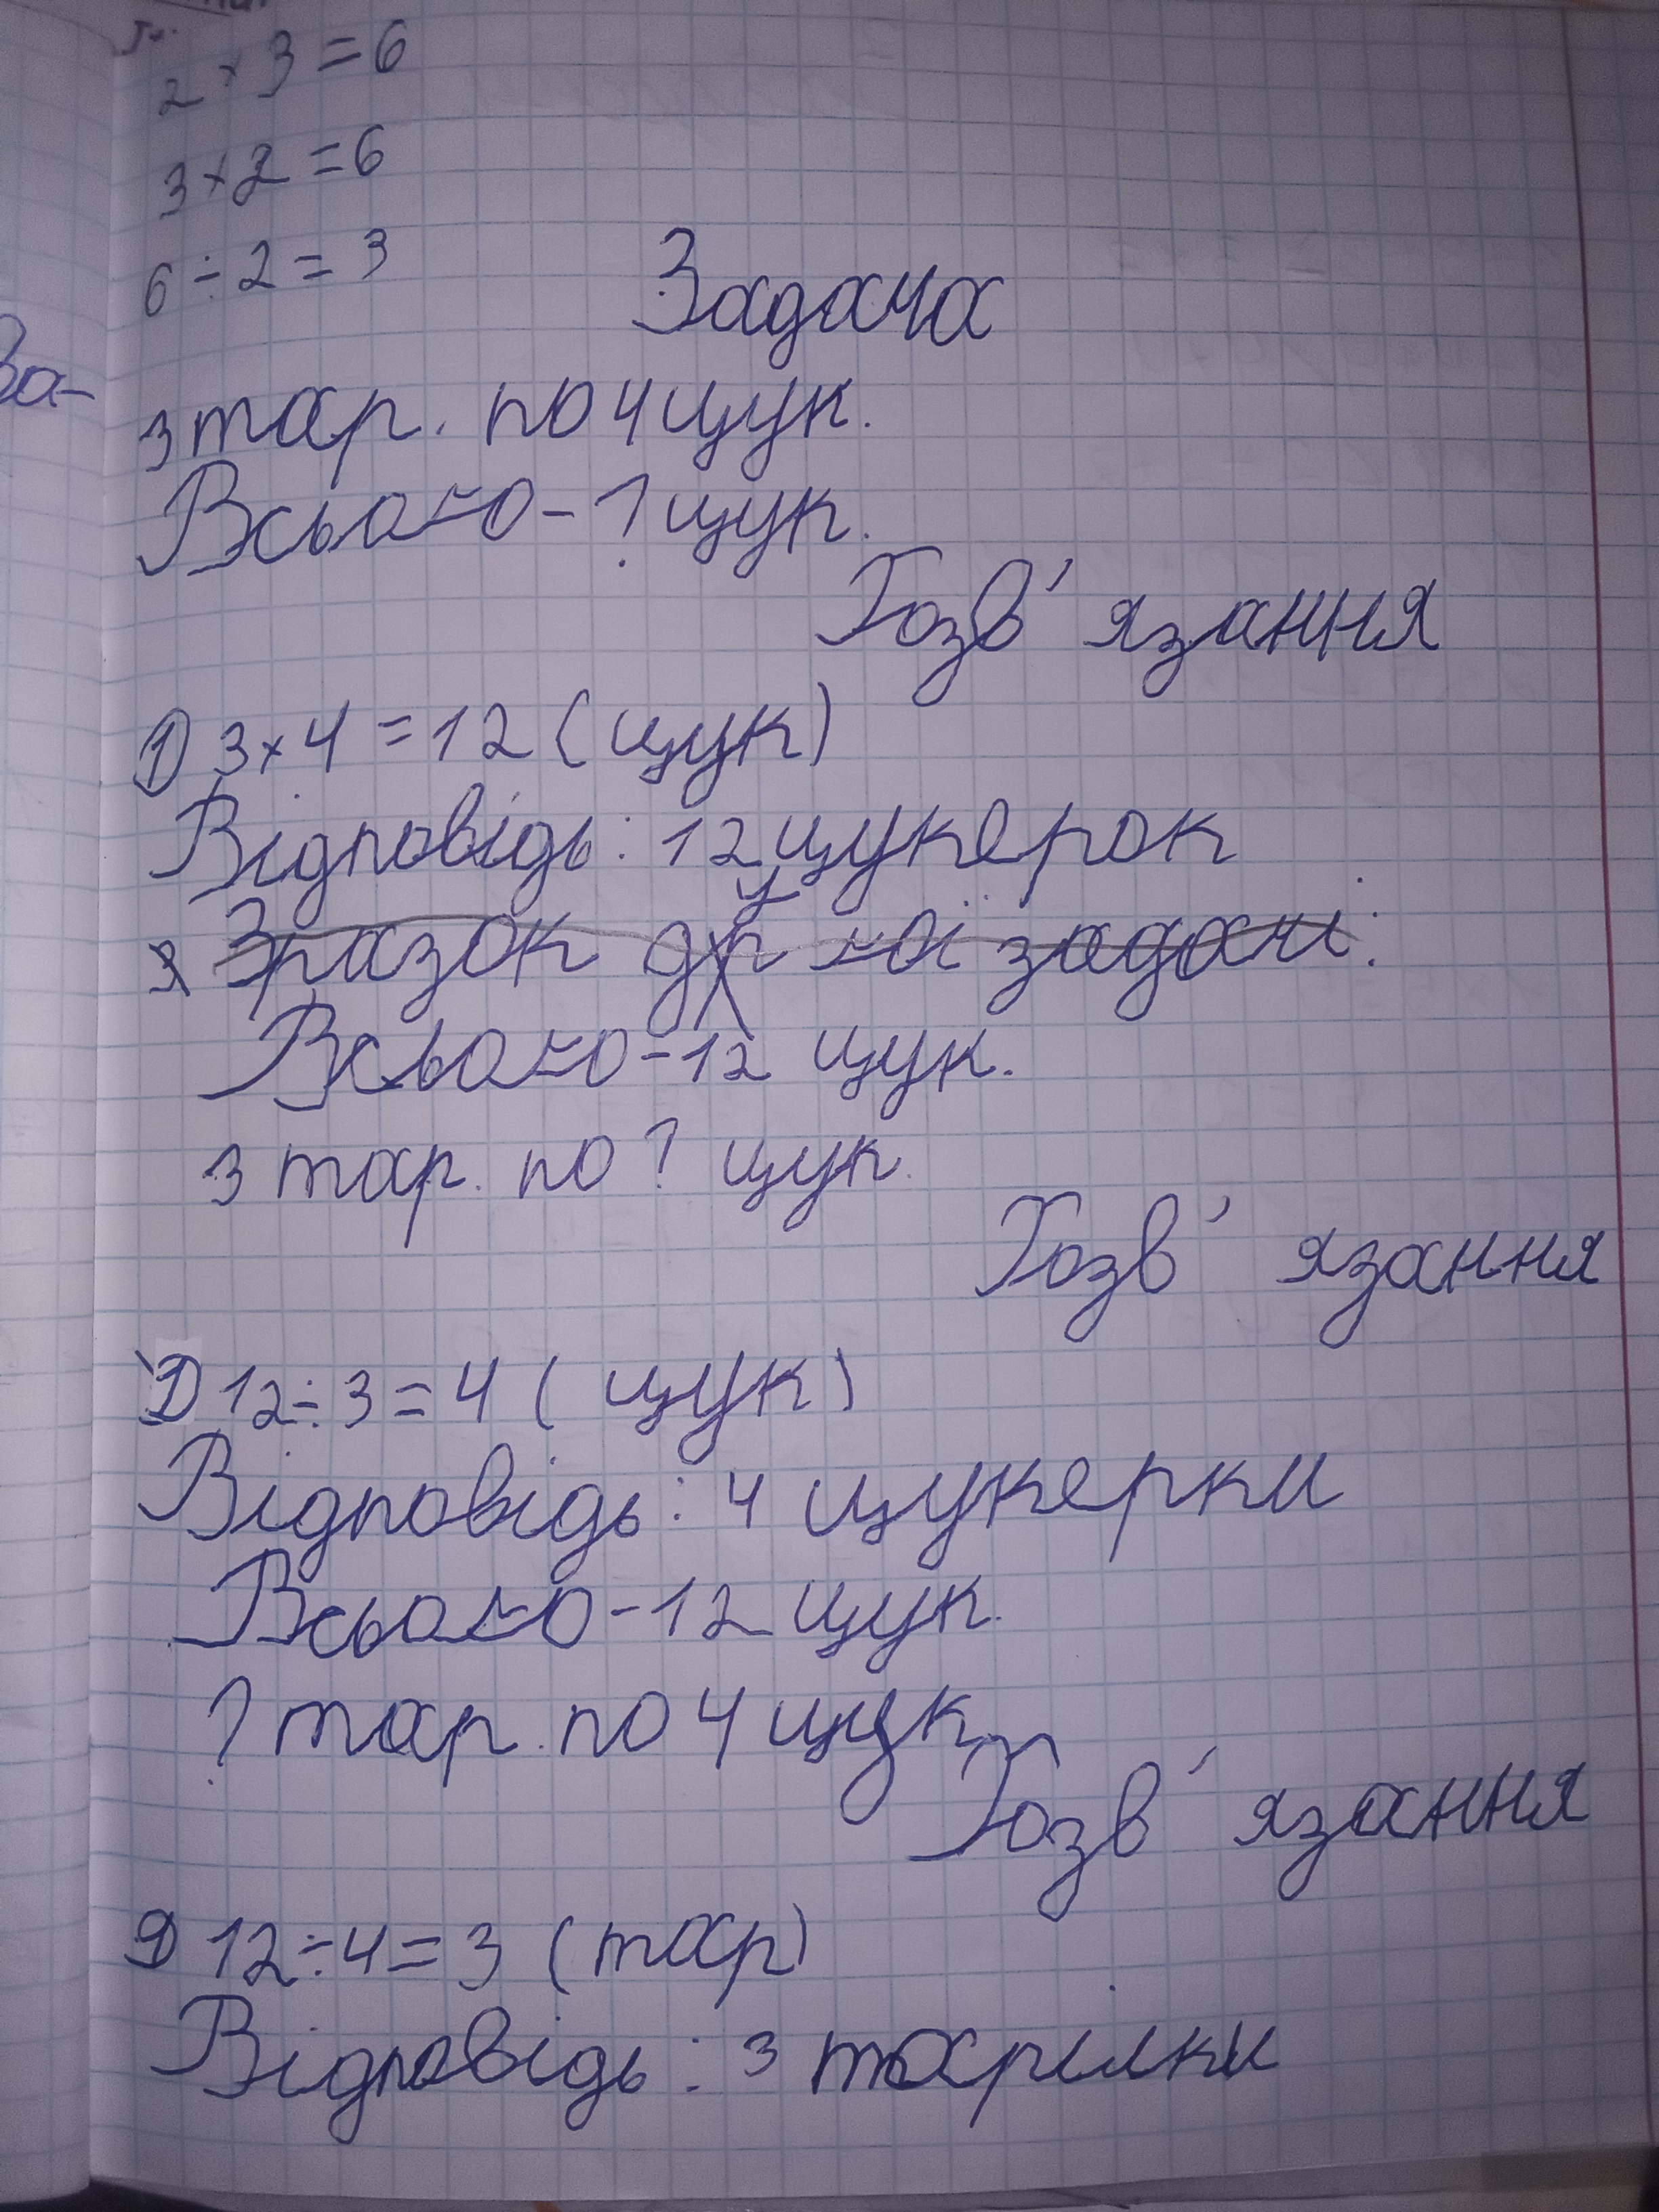 2 × 3 = 6
3 × 2 = 6
6 ÷ 2 = 3
Задача
За-
3 тар. по 4 цук.
Всього - ? цук.
Розв'язання
1) 3 × 4 = 12 (цук)
Відповідь: 12 цукерок
Зразок другої задачі:
Всього - 12 цук.
3 тар. по ? цук.
Розв'язання
1) 12 ÷ 3 = 4 (цук)
Відповідь: 4 цукерки
Всього - 12 цук.
? тар. по 4 цук.
Розв'язання
1) 12 ÷ 4 = 3 (тар)
Відповідь: 3 тарілки